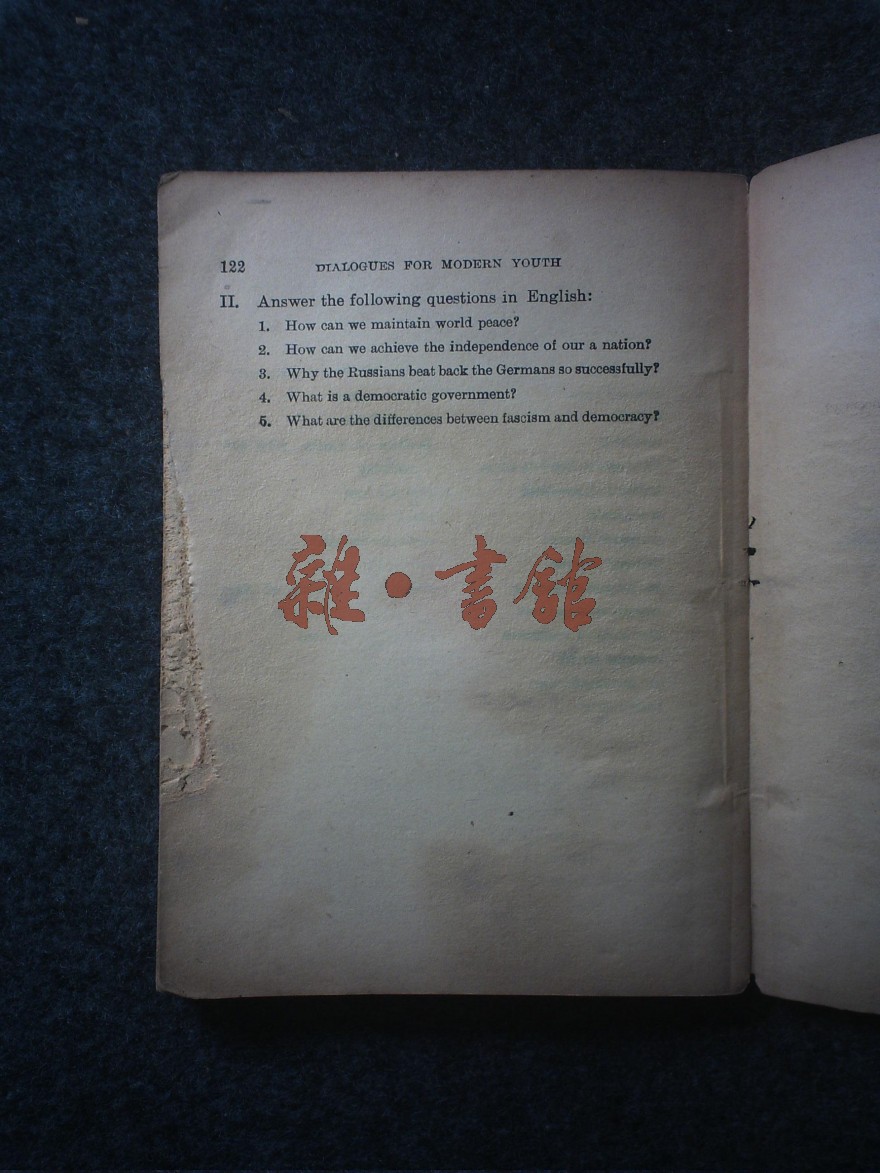 122 DIALOGUES FOR MODERN YOUTH
II. Answer the following questions in English:
1. How can we maintain world peace?
2. How can we achieve the independence of our a nation?
3. Why the Russians beat back the Germans so successfully?
4. What is a democratic government?
5. What are the differences between fascism and democracy?
雜·書館